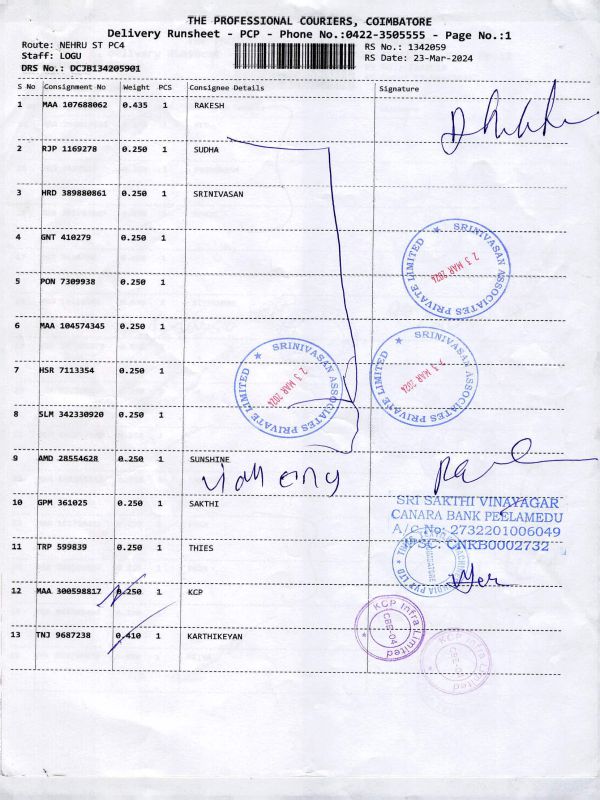 THE PROFESSIONAL COURIERS, COIMBATORE
Delivery Runsheet - PCP - Phone No.:0422-3505555 - Page No.:1
Route: NEHRU ST PC4 RS No.: 1342059
Staff: LOGU RS Date: 23-Mar-2024
DRS No.: DCJB134205901
S No Consignment No Weight PCS Consignee Details Signature
1 MAA 107688062 0.435 1 RAKESH
2 RJP 1169278 0.250 1 SUDHA
3 HRD 389880861 0.250 1 SRINIVASAN
4 GNT 410279 0.250 1
SRINIVASAN ASSOCIATES PRIVATE LIMITED ★
23 MAR 2024
5 PON 7309938 0.250 1
6 MAA 104574345 0.250 1
SRINIVASAN ASSOCIATES PRIVATE LIMITED ★
23 MAR 2024
SRINIVASAN ASSOCIATES PRIVATE LIMITED ★
23 MAR 2024
7 HSR 7113354 0.250 1
8 SLM 342330920 0.250 1
9 AMD 28554628 0.250 1 SUNSHINE
10 GPM 361025 0.250 1 SAKTHI
SRI SAKTHI VINAYAGAR
CANARA BANK PEELAMEDU
A/C No: 2732201006049
IFSC: CNRB0002732
11 TRP 599839 0.250 1 THIES
12 MAA 300598817 0.250 1 KCP
KCP Infra Limited
CBE-04
13 TNJ 9687238 0.410 1 KARTHIKEYAN
KCP Infra Limited